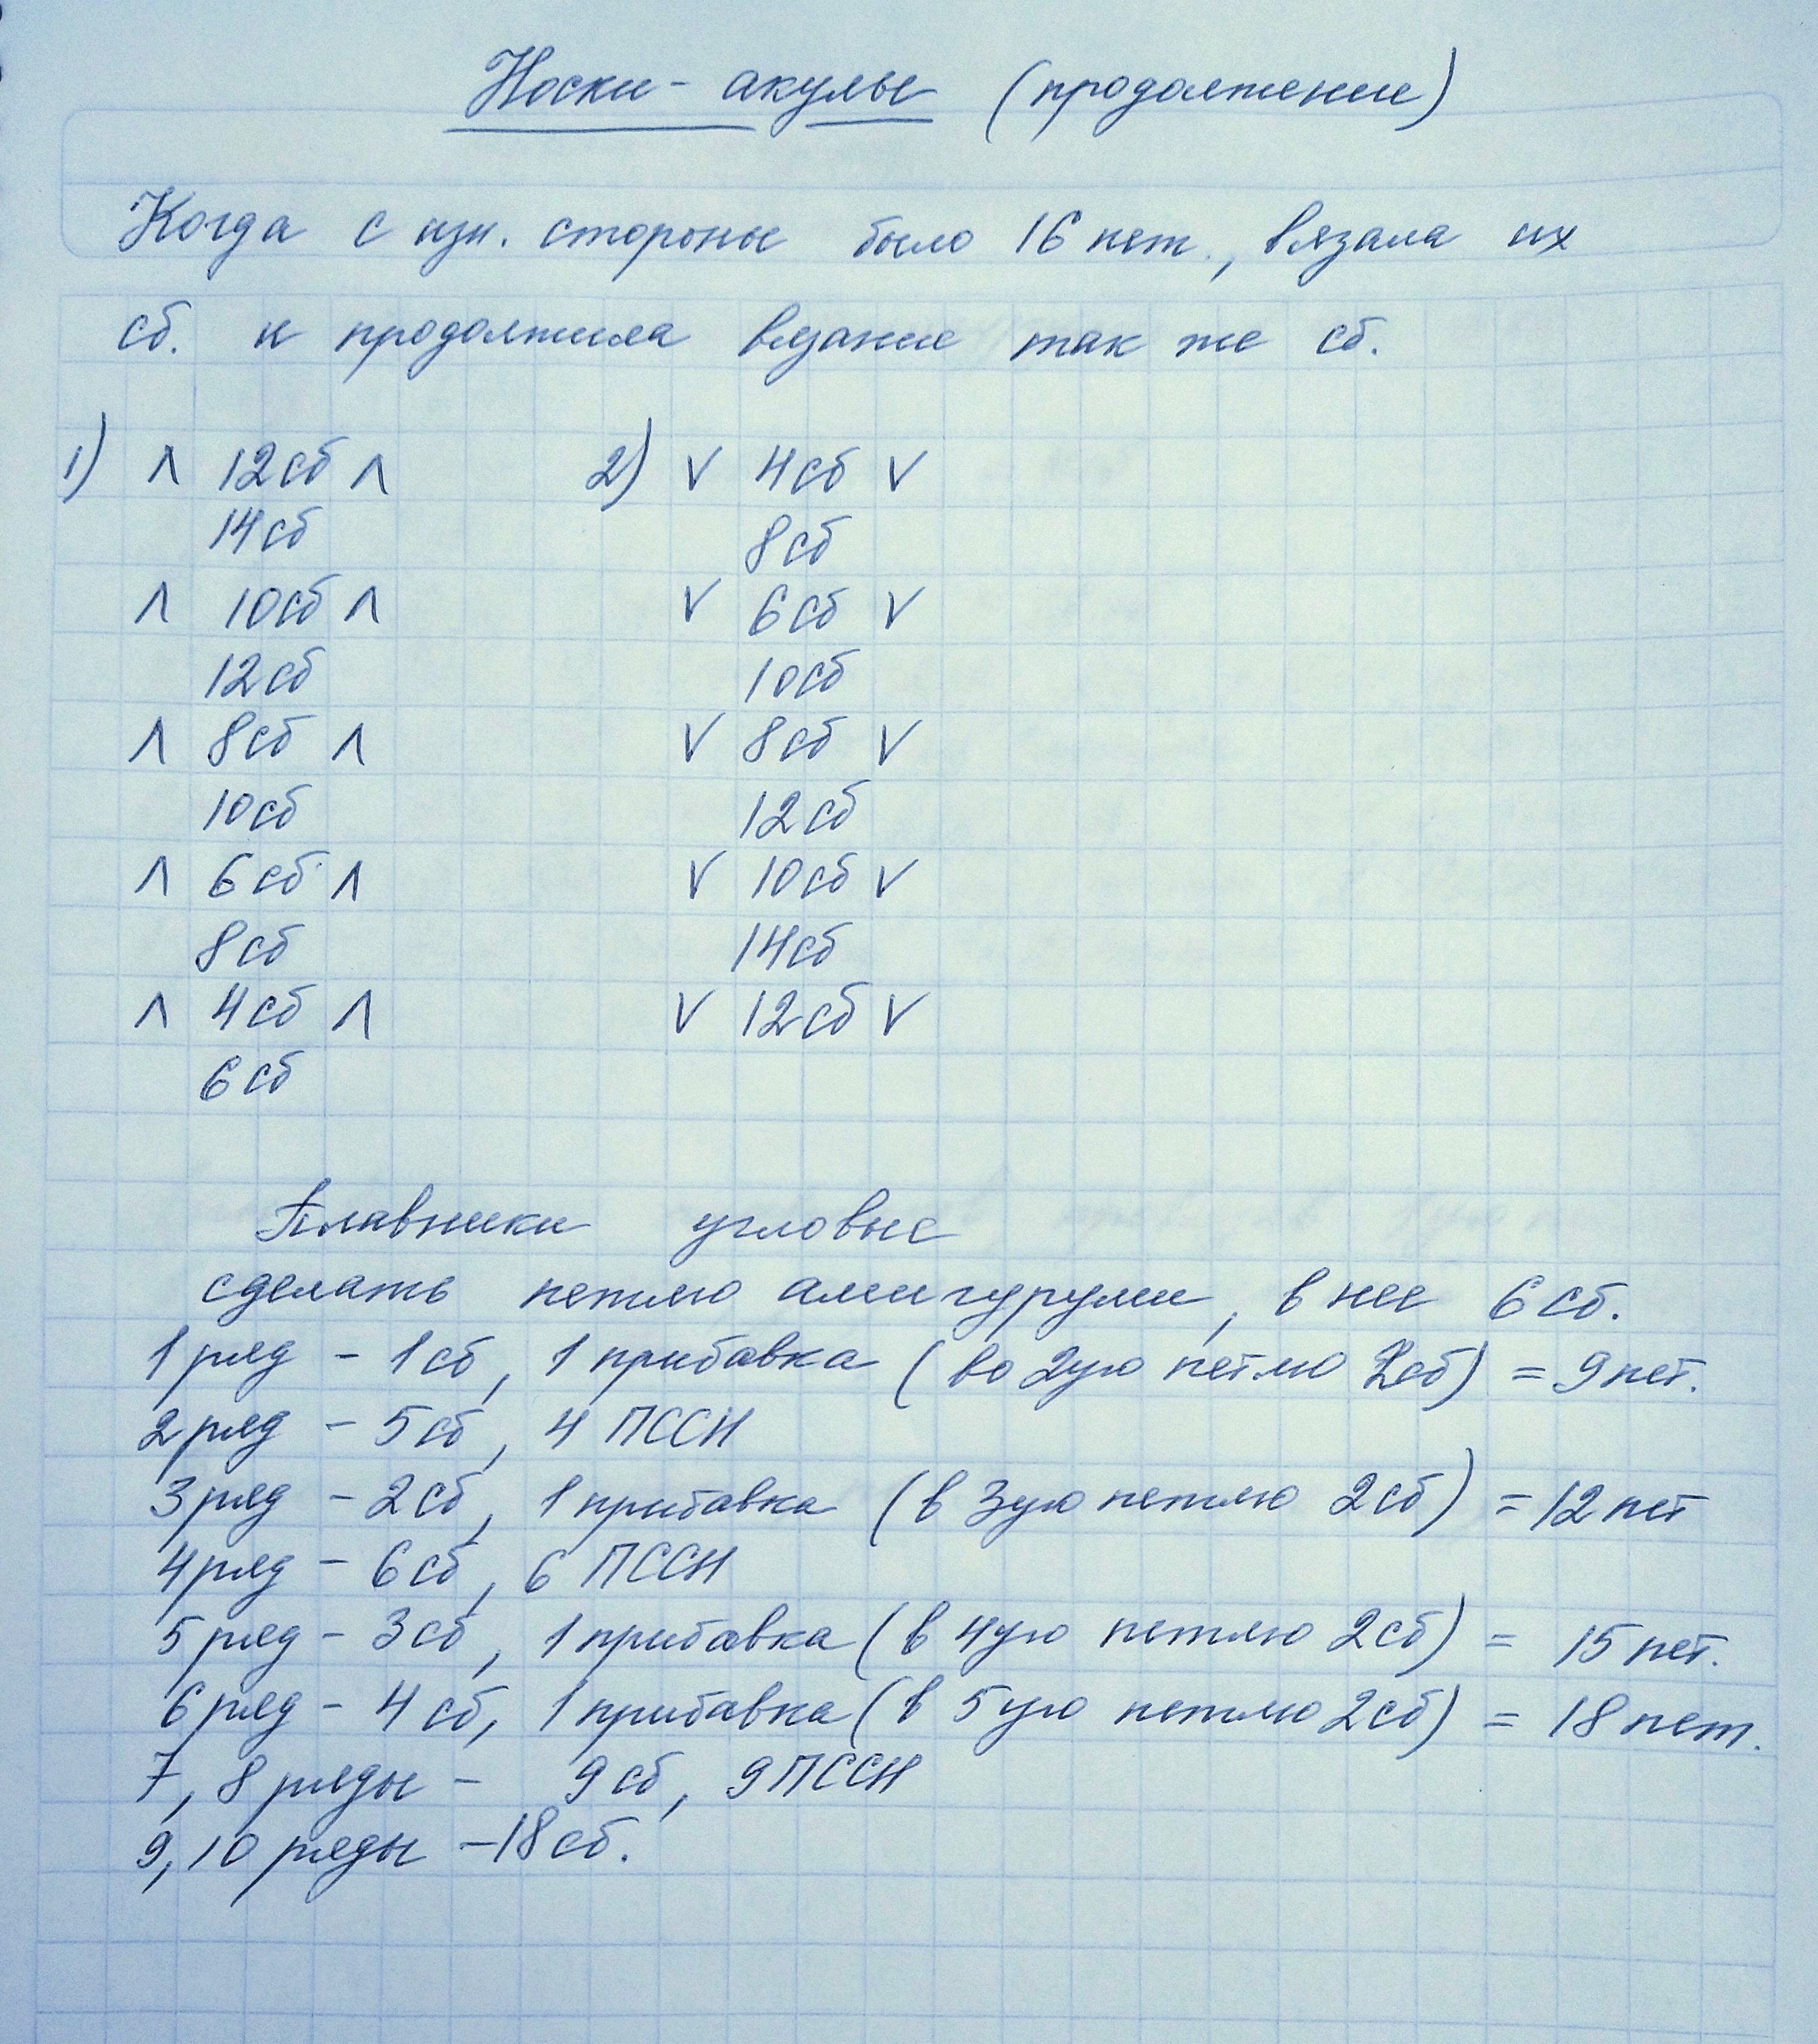 Носки - акулы (продолжение)
Когда с изн. стороны было 16 пет., вязала их
сб. и продолжила вязание так же сб.
1) Λ 12сб Λ 2) V 4сб V
14сб 8сб
Λ 10сб Λ V 6сб V
12сб 10сб
Λ 8сб Λ V 8сб V
10сб 12сб
Λ 6сб Λ V 10сб V
8сб 14сб
Λ 4сб Λ V 12сб V
6сб
Плавники угловые
сделать петлю амигуруми, в нее 6 сб.
1 ряд - 1 сб, 1 прибавка (во 2ую петлю 2сб) = 9 пет.
2 ряд - 5 сб, 4 ПССН
3 ряд - 2 сб, 1 прибавка (в 3ую петлю 2сб) = 12 пет
4 ряд - 6 сб, 6 ПССН
5 ряд - 3 сб, 1 прибавка (в 4ую петлю 2сб) = 15 пет.
6 ряд - 4 сб, 1 прибавка (в 5ую петлю 2сб) = 18 пет.
7, 8 ряды - 9 сб, 9 ПССН
9, 10 ряды - 18 сб.